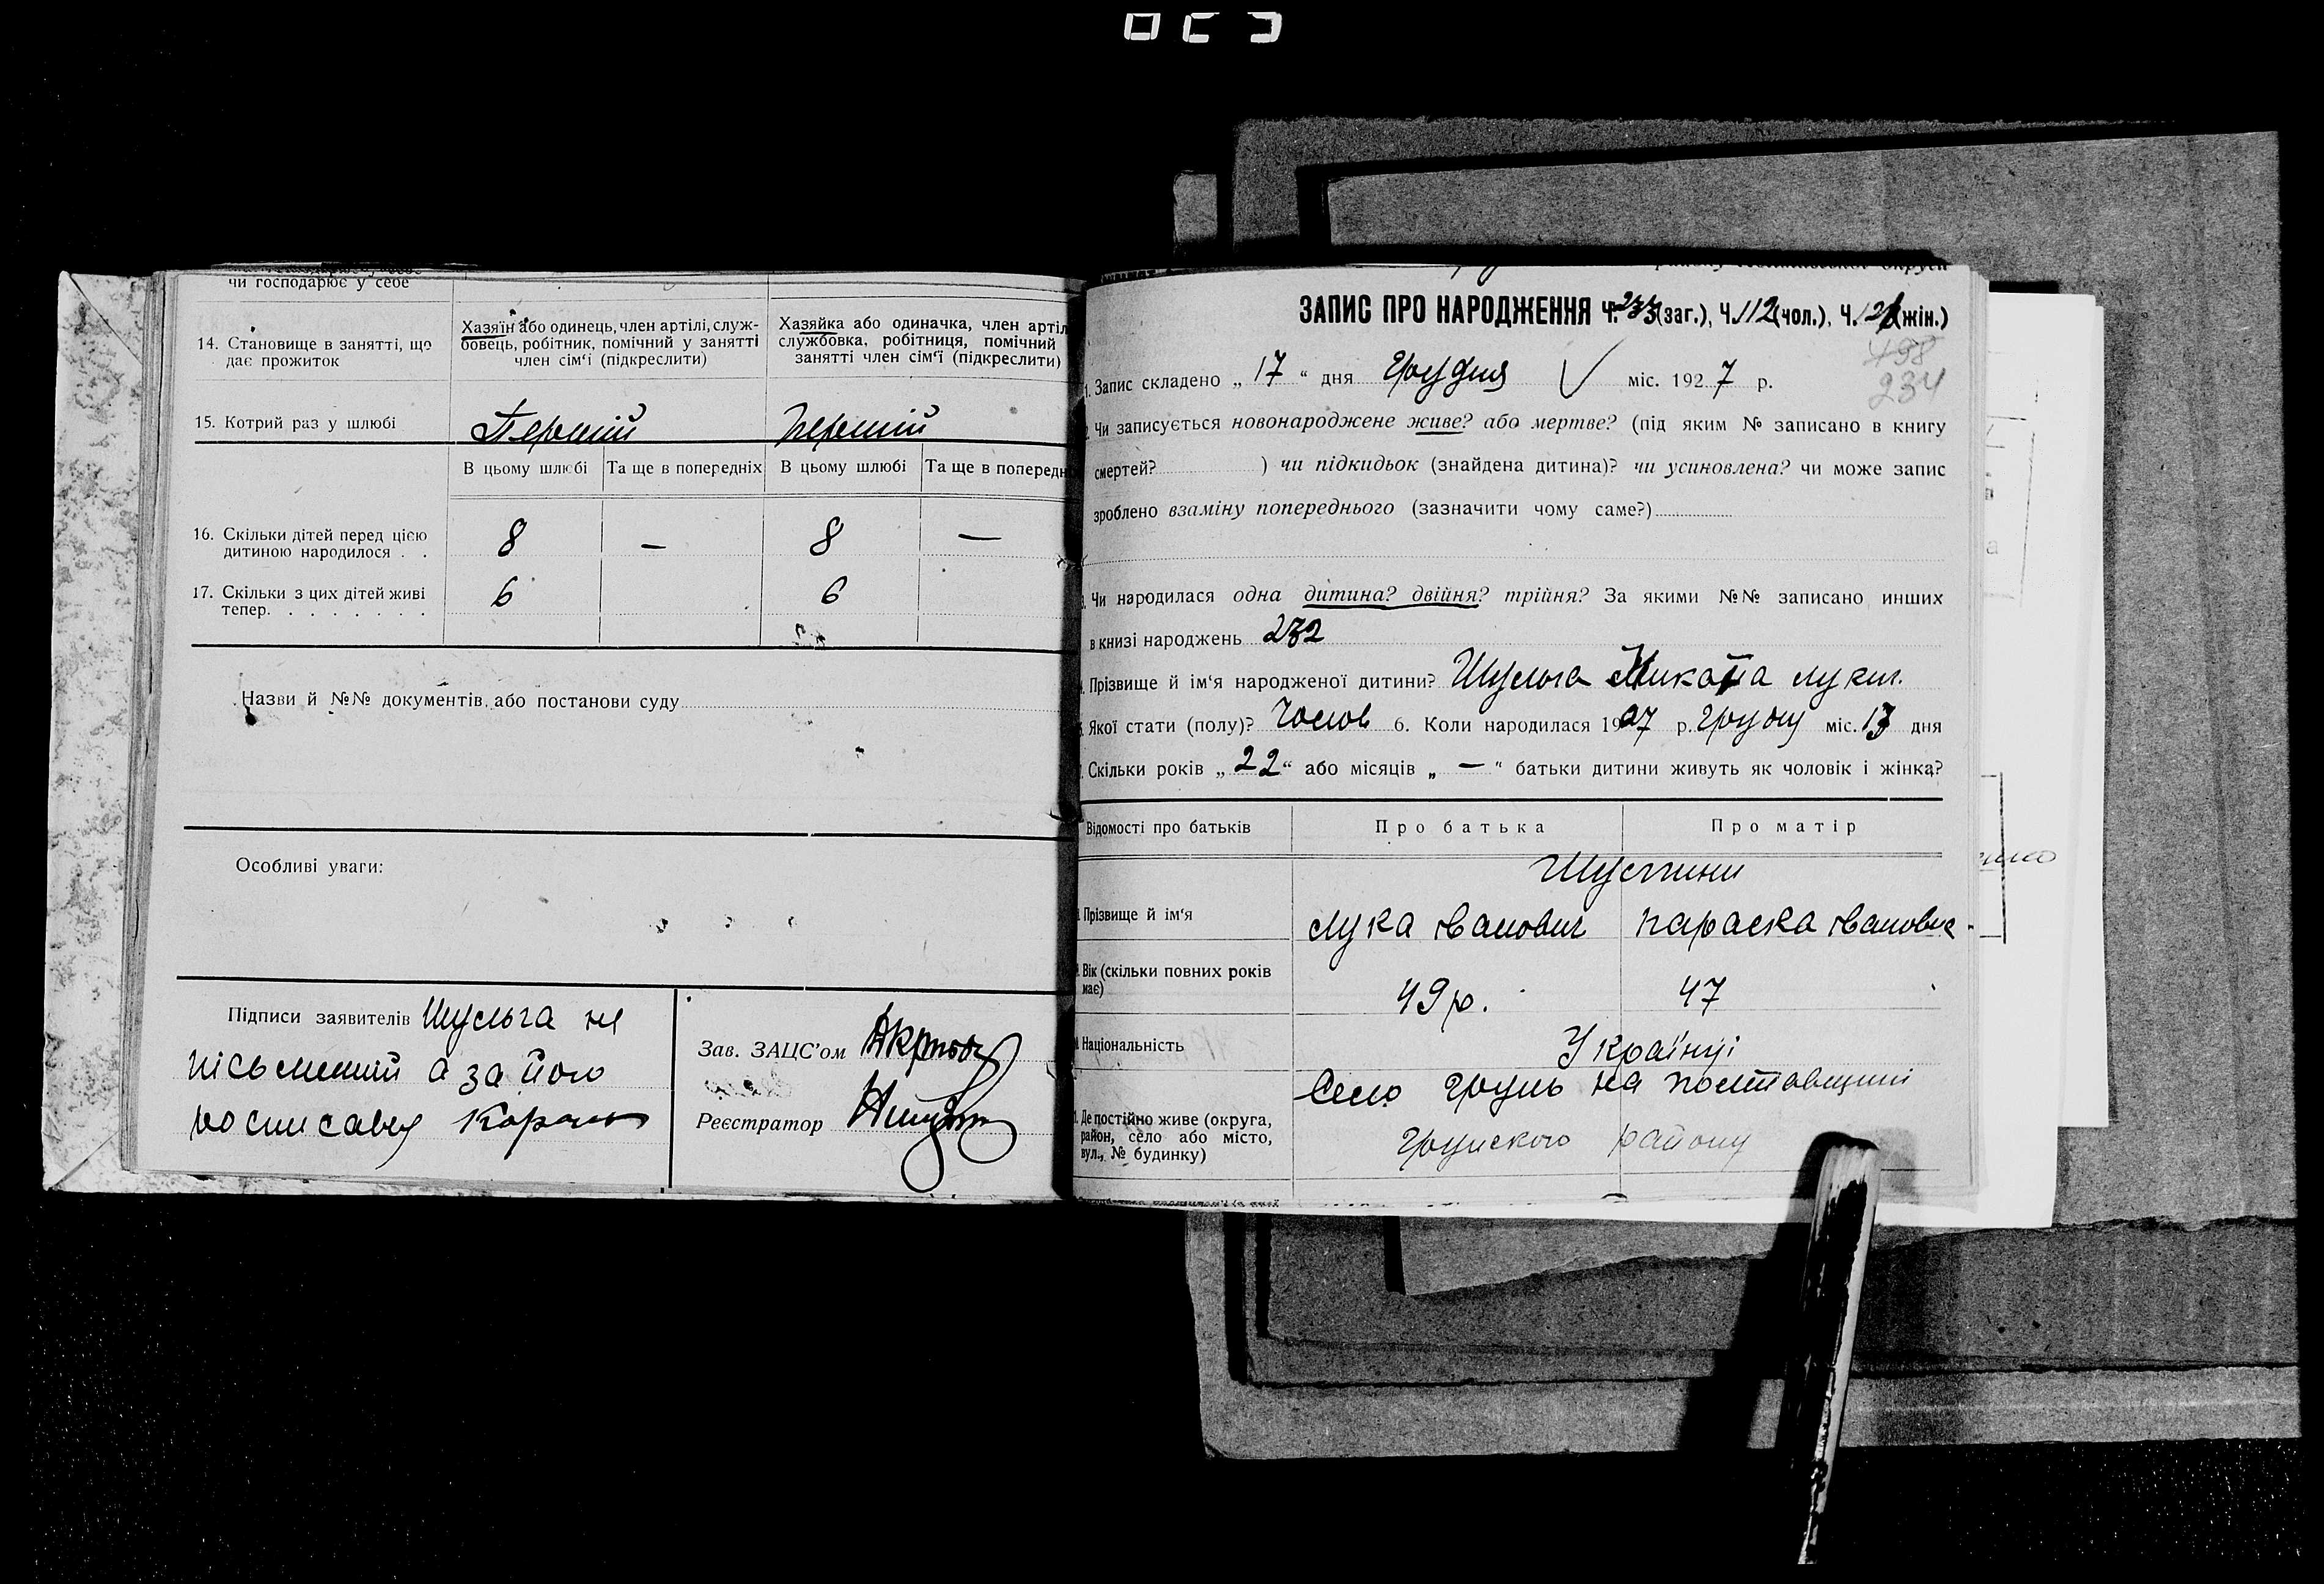 чи господарює у себе
14. Становище в занятті, що дає прожиток
Хазяїн або одинець, член артілі, службовець, робітник, помічний у занятті член сім'ї (підкреслити)
Хазяйка або одиначка, член артіл
службовка, робітниця, помічний
занятті член сім'ї (підкреслити)
15. Котрий раз у шлюбі Першій першій
В цьому шлюбі Та ще в попередніх В цьому шлюбі Та ще в попередн
16. Скільки дітей перед цією дитиною народилося . . 8 — 8 —
17. Скільки з цих дітей живі тепер. . . . . . . 6 6
Назви й №№ документів або постанови суду
Особливі уваги:
Підписи заявителів Шульга не
пісьменний а за його
росписався
Зав. ЗАЦС'ом
Реєстратор
району округи
ЗАПИС ПРО НАРОДЖЕННЯ Ч. 233 (заг.), Ч. 112 (чол.), Ч. 121 (жін.)
498
234
1. Запис складено „ 17 “ дня Грудня міс. 1927 р.
Чи записується новонароджене живе? або мертве? (під яким № записано в книгу
смертей? ) чи підкидьок (знайдена дитина)? чи усиновлена? чи може запис
зроблено взаміну попереднього (зазначити чому саме?)
Чи народилася одна дитина? двійня? трійня? За якими №№ записано инших
в книзі народжень 232
Прізвище й ім'я народженої дитини? Шульга Микола Лукич.
Якої стати (полу)? Чолов 6. Коли народилася 1927 р. Грудн міс. 13 дня
Скільки років „ 22 “ або місяців „ — “ батьки дитини живуть як чоловік і жінка?
Відомості про батьків Про батька Про матір
Прізвище й ім'я
Лука Іванович Параска Івановна
Вік (скільки повних років має) 49 р. 47
Національність Українці
Де постійно живе (округа, район, село або місто, вул., № будинку)
Село Грунь на Полтавщині
Грунского району